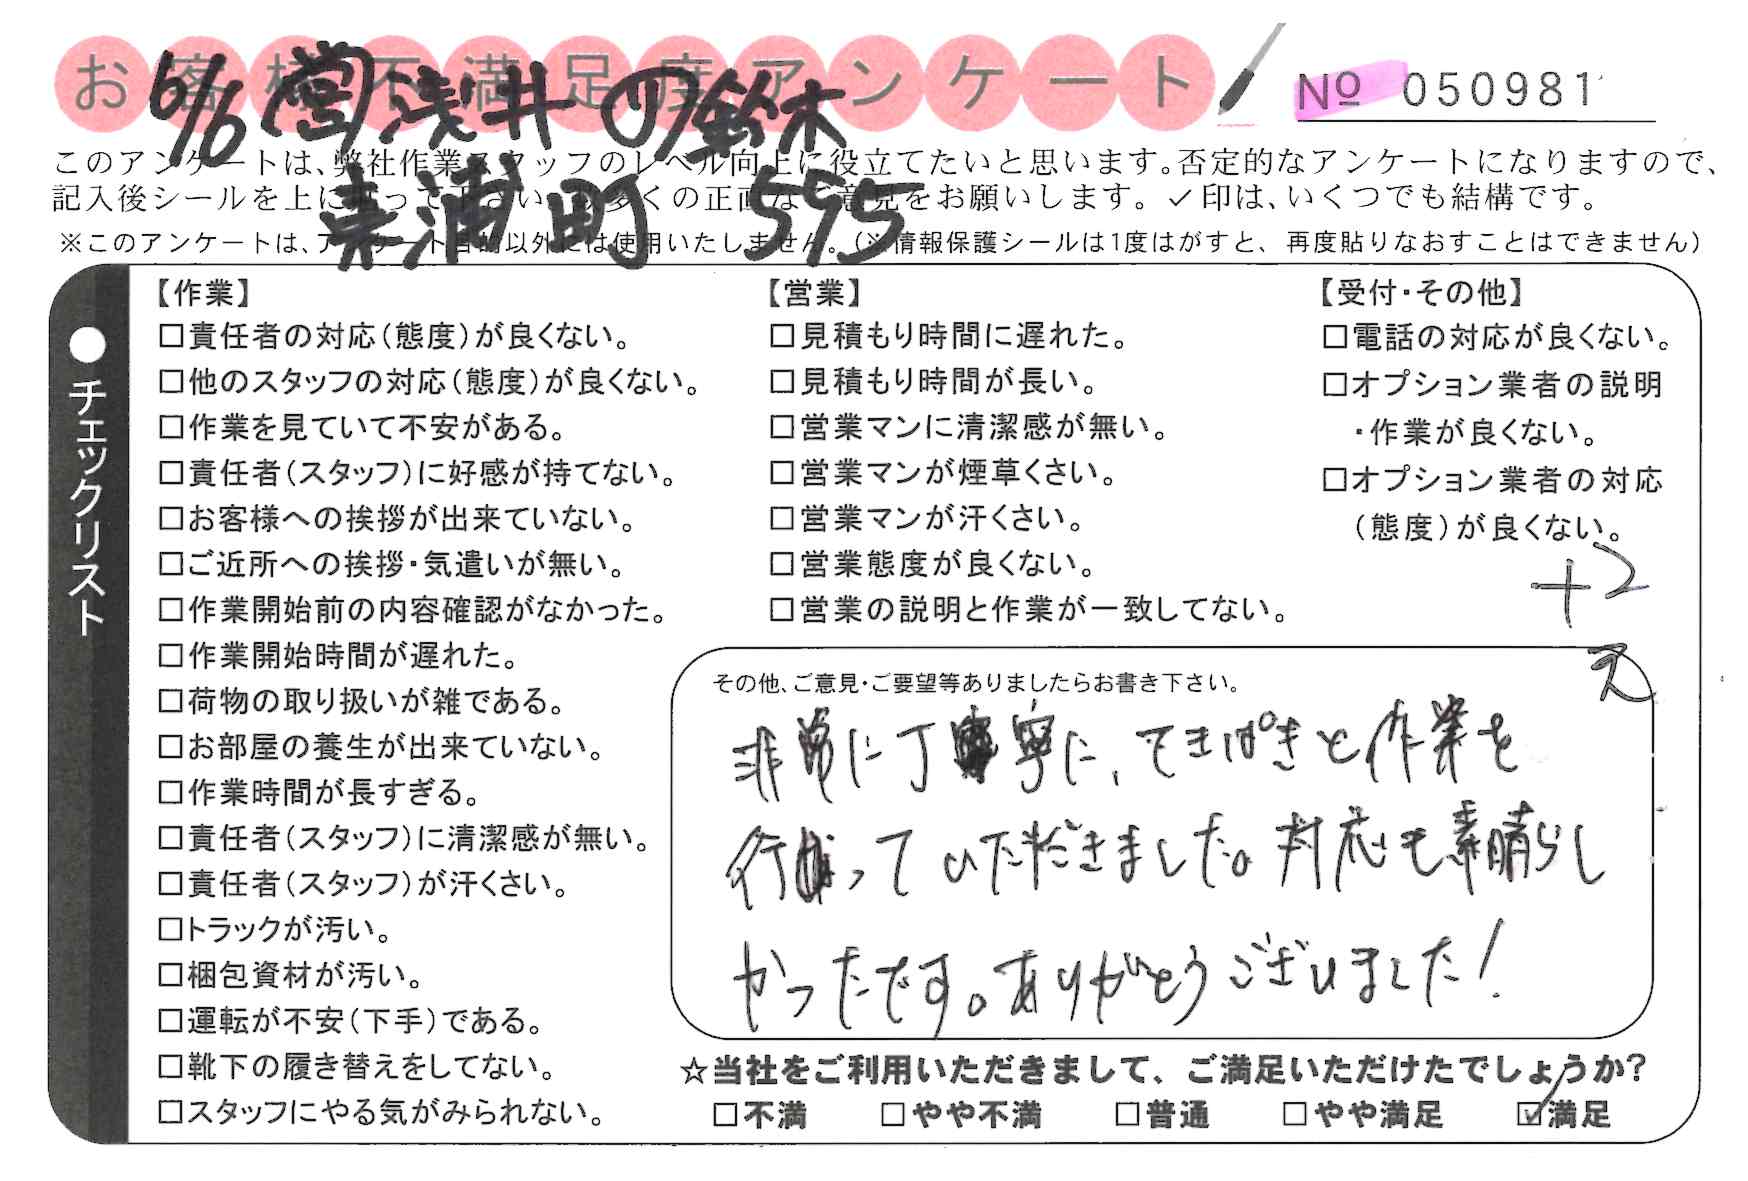 お客様不満足度アンケート
№ 050981
6/6 ㊂浅井 の 鈴木
東浦町 595
このアンケートは、弊社作業スタッフのレベル向上に役立てたいと思います。否定的なアンケートになりますので、
記入後シールを上に貼って下さい。数多くの正直なご意見をお願いします。✓印は、いくつでも結構です。
※このアンケートは、アンケート目的以外には使用いたしません。（※情報保護シールは1度はがすと、再度貼りなおすことはできません）
●チェックリスト
【作業】
□責任者の対応（態度）が良くない。
□他のスタッフの対応（態度）が良くない。
□作業を見ていて不安がある。
□責任者（スタッフ）に好感が持てない。
□お客様への挨拶が出来ていない。
□ご近所への挨拶・気遣いが無い。
□作業開始前の内容確認がなかった。
□作業開始時間が遅れた。
□荷物の取り扱いが雑である。
□お部屋の養生が出来ていない。
□作業時間が長すぎる。
□責任者（スタッフ）に清潔感が無い。
□責任者（スタッフ）が汗くさい。
□トラックが汚い。
□梱包資材が汚い。
□運転が不安（下手）である。
□靴下の履き替えをしてない。
□スタッフにやる気がみられない。
【営業】
□見積もり時間に遅れた。
□見積もり時間が長い。
□営業マンに清潔感が無い。
□営業マンが煙草くさい。
□営業マンが汗くさい。
□営業態度が良くない。
□営業の説明と作業が一致してない。
【受付・その他】
□電話の対応が良くない。
□オプション業者の説明
・作業が良くない。
□オプション業者の対応
（態度）が良くない。
+2
その他、ご意見・ご要望等ありましたらお書き下さい。
非常に丁寧に、てきぱきと作業を
行っていただきました。対応も素晴らし
かったです。ありがとうございました!
☆当社をご利用いただきまして、ご満足いただけたでしょうか?
□不満 □やや不満 □普通 □やや満足 ☑満足